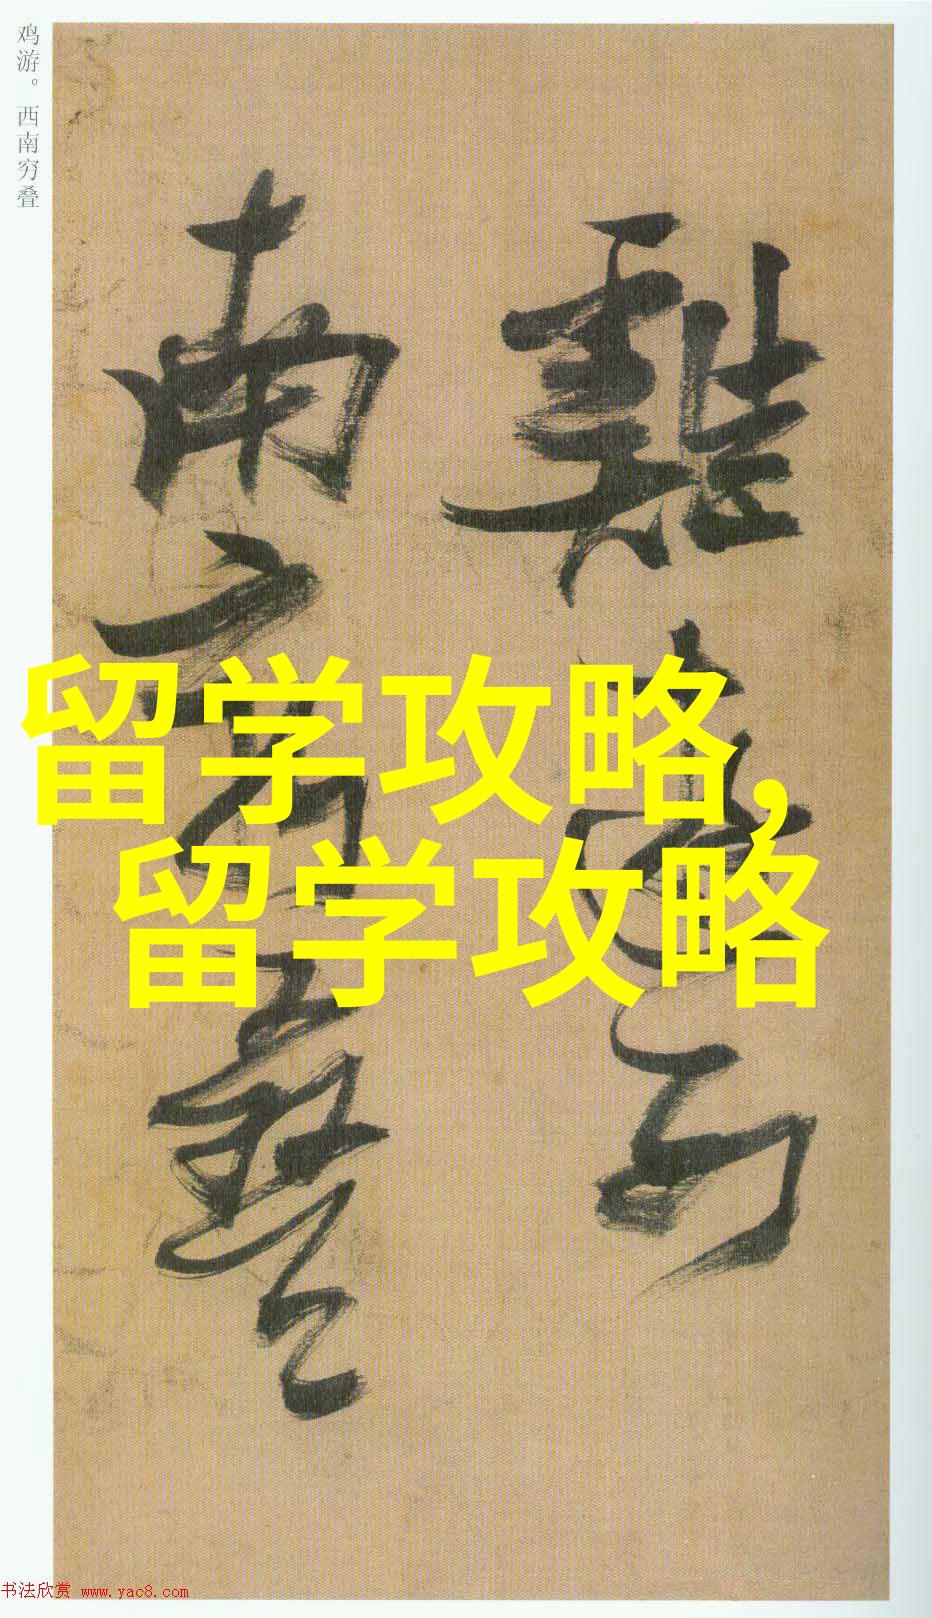 鸡游。西南穷叠
雞
南
留学攻略，
留学攻略
书法欣赏 www.yac8.com